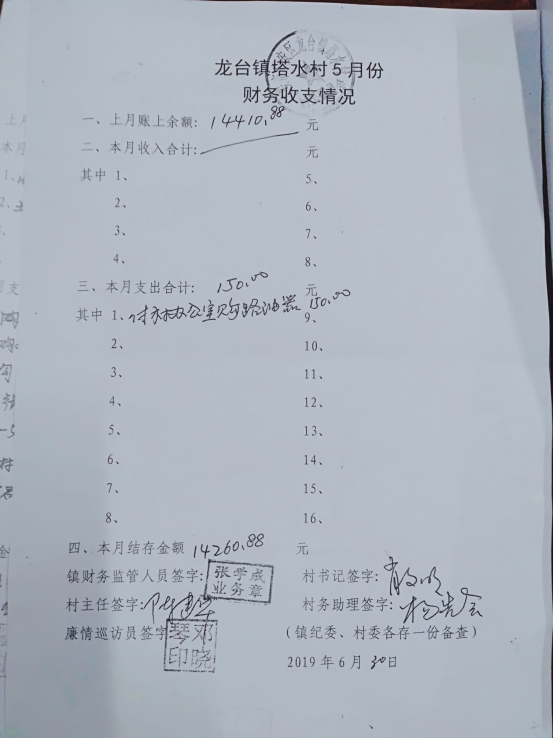 龙台镇塔水村5月份
财务收支情况
一、上月账上余额: 14410.88 元
二、本月收入合计: 元
其中 1、 5、
2、 6、
3、 7、
4、 8、
三、本月支出合计: 150.00 元
其中 1、付村办公室购路由器 150.00 9、
2、 10、
3、 11、
4、 12、
5、 13、
6、 14、
7、 15、
8、 16、
四、本月结存金额 14260.88 元
镇财务监管人员签字: 张学成 业务章 村书记签字:
村主任签字: 村务助理签字:
廉情巡访员签字 邓晓琴印 (镇纪委、村委各存一份备查)
2019年6月30日